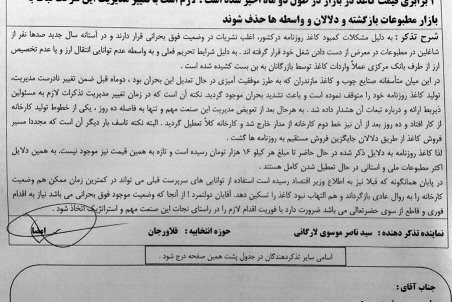 ۲ برابری قیمت کاغذ در بازار در طول دو ماه اخیر شده است . لازم است با تغییر مدیریت این شرکت ثبات به
بازار مطبوعات بازگشته و دلالان و واسطه ها حذف شوند
شرح تذکر : به دلیل مشکلات کمبود کاغذ روزنامه درکشور، اغلب نشریات در وضعیت فوق بحرانی قرار دارند و در آستانه سال جدید صدها نفر از
شاغلین در مطبوعات در معرض از دست دادن شغل خود قرار گرفته اند . به دلیل شرایط تحریم فعلی و به واسطه عدم توانایی انتقال ارز و یا عدم تخصیص
ارز از طرف بانک مرکزی عملاً واردات کاغذ توسط بازرگانان به بن بست کشیده شده است .
در این میان متأسفانه صنایع چوب و کاغذ مازندران که به طرز موفقیت آمیزی در حال تعدیل این بحران بود ، دوماه قبل ضمن تغییر نادرست مدیریت،
تولید کاغذ روزنامه خود را متوقف نموده است و باعث تشدید بحران موجود گردید. نکته آن است که در زمان تغییر مدیریت تذکرات لازم به مسئولین
ذیربط ارائه و درباره تبعات آن هشدار داده شد . به هرحال بعد از تعویض مدیریت این صنعت مهم و تنها به فاصله ده روز ، یکی از خطوط تولید کارخانه
از کار افتاد و ده روز بعد از آن نیز خط دوم کارخانه از مدار خارج شد و کارخانه کلاً تعطیل گردید . البته نکته تاسف بار دیگر آن است که مجددا مسیر
فروش کاغذ از طریق دلالان جایگزین فروش مستقیم به روزنامه ها گشت .
لذا کاغذ روزنامه به دلایل ذکر شده در حال حاضر تا مبلغ هر کیلو ۱۶ هزار تومان رسیده است و تازه به همین قیمت نیز موجود نیست. به همین دلایل
اکثر مطبوعات ملی و استانی در حال تعطیل شدن کامل هستند .
در پایان همانگونه که قبلا نیز به اطلاع وزیر اقتصاد رسیده است استفاده از توانایی های سرپرست قبلی می تواند در کمترین زمان ممکن هم وضعیت
کارخانه را به روال عادی بازگرداند و هم التهاب نبود کاغذ را تسکین دهد. آقایان دولتمرد ! از آنجا که وضعیت موجود فوق بحرانی می باشد نیاز به اقدام
فوری و قاطع از سوی حضرتعالی می باشد ضرورت دارد با فوریت اقدام لازم را در راستای نجات این صنعت مهم و استراتژیک اتخاذ شود .
نماینده تذکر دهنده : سید ناصر موسوی لارگانی حوزه انتخابیه : فلاورجان امضا
اسامی سایر تذکردهندگان در جدول پشت همین صفحه درج شود .
جناب آقای :